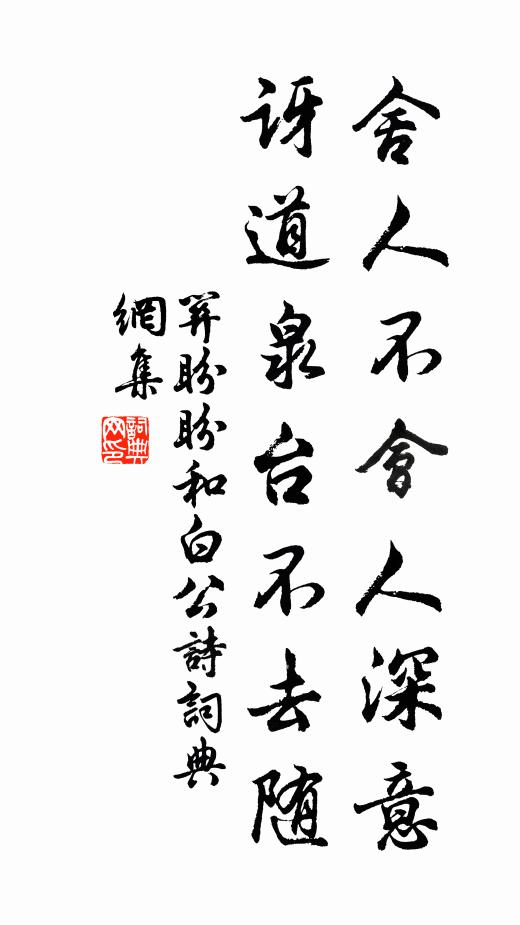 舍人不會人深意
訝道泉台不去随
關盼盼和白公詩詞典
網集
詞典
网印